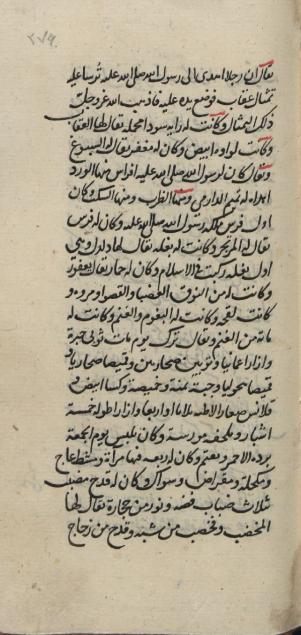 ٢٧٩
يقال ان رجلا اهدى الى رسول الله صلى الله عليه ترسا عليه
تمثال عقاب فوضع يده عليه فاذهب الله عز وجل
ذلك التمثال وكانت له راية سودا مخملة يقال لها العقاب
وكانت لواوه ابيض وكان له مغفر يقال له السبوغ
ويقال كان لرسول الله صلى الله عليه افراس منها الورد
اهداه له تميم الداري ومنها الظرب ومنها السكب وكان
اول فرس ملكه رسول الله صلى الله عليه وكان له فرس
يقال له المرتجز وكانت له بغلة يقال لها دلدل وهي
اول بغلة ركبت في الاسلام وكان له حمار يقال يعفور
وكانت له من النوق العضبا والقصوا ومروه و
كانت لقحه وكانت له البغوم والغنم وكانت له
ماية من الغنم ويقال ترك يوم مات ثوبي حبرة
وازارا عمانيا وثوبين صحاريين وقميصا صحاريا و
قميصا سحوليا وجبة يمنة وخميصة وكسا ابيض و
قلانس صغارا لاطية ثلاثا او اربعا وازارا طوله خمسة
اشبار وملحفة مورسة وكان يلبس يوم الجمعة
برده الاحمر ويعتم وكان له ربعه فيها مرآة ومشط عاج
ومكحلة ومقراض وسواك وكان له قدح مضبب
ثلاث ضباب فضه وتور من حجارة يقال لها
المخضب ومخضب من شبه وقدح من زجاج